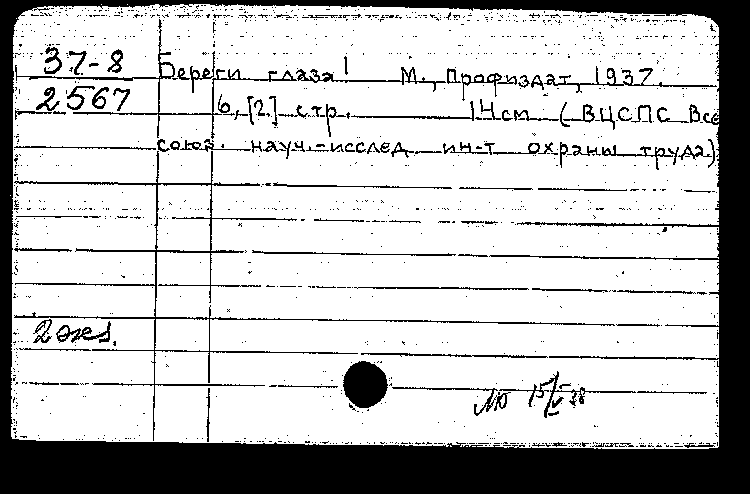 37-8
2567
Береги глаза! М., Профиздат, 1937.
6, [2] стр. 14см (ВЦСПС Все
союз. науч.-исслед. ин-т охраны труда)
2 экз.
15/V 38